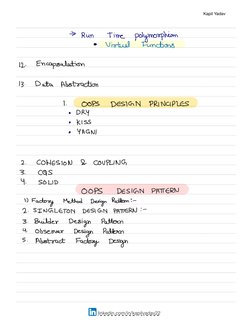 Kapil Yadav
→ Run Time polymorphism
• Virtual Functions
12. Encapsulation
13. Data Abstraction
1. OOPS DESIGN PRINCIPLES
• DRY
• KISS
• YAGNI
2. COHESION & COUPLING
3. CQS
4. SOLID
OOPS DESIGN PATTERN
1) Factory Method Design Pattern:-
2. SINGLETON DESIGN PATTERN:-
3. Builder Design Pattern
4. Observer Design Pattern
5. Abstract Factory Design